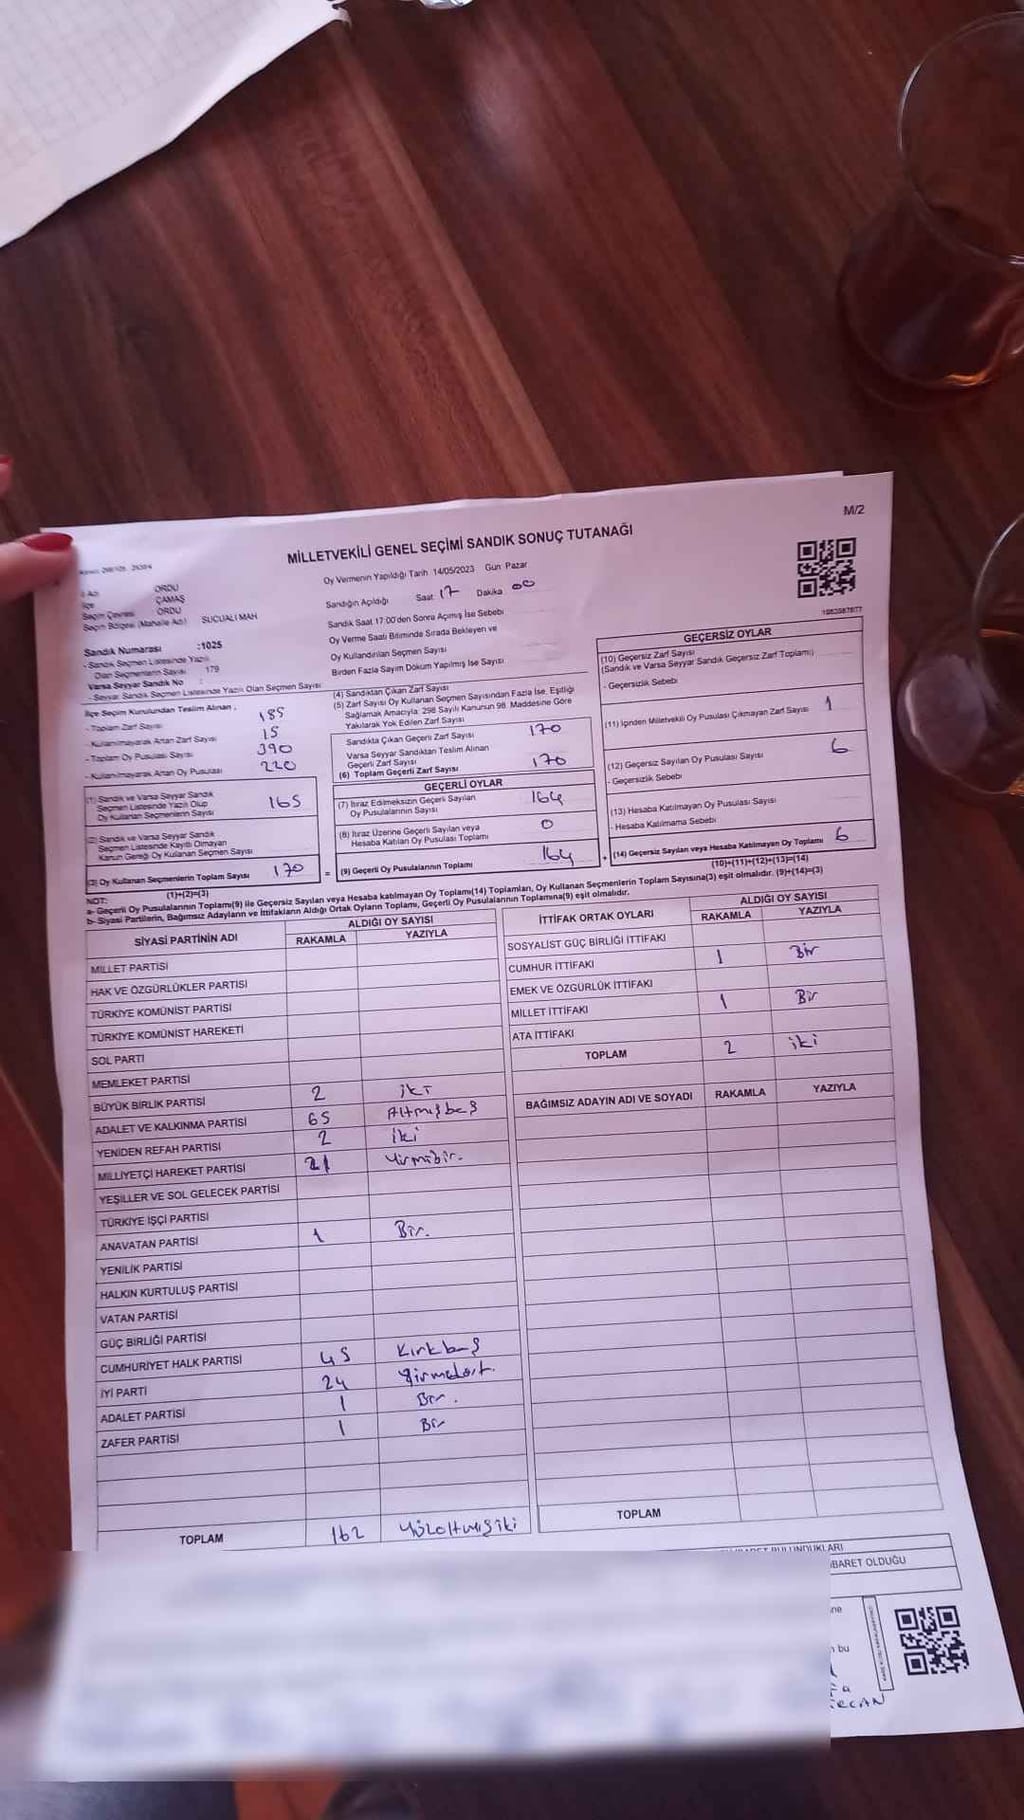 M/2
MİLLETVEKİLİ GENEL SEÇİMİ SANDIK SONUÇ TUTANAĞI
1063587877
İl Adı ORDU
İlçe ÇAMAŞ
Seçim Çevresi ORDU
Seçim Bölgesi (Mahalle Adı) SUCUALİ MAH
Oy Vermenin Yapıldığı Tarih 14/05/2023 Gün Pazar
Sandığın Açıldığı Saat 17 Dakika 00
Sandık Saat 17:00'den Sonra Açılmış İse Sebebi
Oy Verme Saati Bitiminde Sırada Bekleyen ve
Oy Kullandırılan Seçmen Sayısı
Birden Fazla Sayım Döküm Yapılmış İse Sayısı
Sandık Numarası :1025
- Sandık Seçmen Listesinde Yazılı
Olan Seçmenlerin Sayısı 179
Varsa Seyyar Sandık No :
- Seyyar Sandık Seçmen Listesinde Yazılı Olan Seçmen Sayısı
İlçe Seçim Kurulundan Teslim Alınan ;
- Toplam Zarf Sayısı 185
- Kullanılmayarak Artan Zarf Sayısı 15
- Toplam Oy Pusulası Sayısı 390
- Kullanılmayarak Artan Oy Pusulası 220
(1) Sandık ve Varsa Seyyar Sandık
Seçmen Listesinde Yazılı Olup
Oy Kullanan Seçmenlerin Sayısı 165
(2) Sandık ve Varsa Seyyar Sandık
Seçmen Listesinde Kayıtlı Olmayan
Kanun Gereği Oy Kullanan Seçmen Sayısı
(3) Oy Kullanan Seçmenlerin Toplam Sayısı 170
(1)+(2)=(3)
(4) Sandıktan Çıkan Zarf Sayısı
(5) Zarf Sayısı Oy Kullanan Seçmen Sayısından Fazla İse, Eşitliği
Sağlamak Amacıyla 298 Sayılı Kanunun 98. Maddesine Göre
Yakılarak Yok Edilen Zarf Sayısı
Sandıkta Çıkan Geçerli Zarf Sayısı 170
Varsa Seyyar Sandıktan Teslim Alınan
Geçerli Zarf Sayısı
(6) Toplam Geçerli Zarf Sayısı 170
GEÇERLİ OYLAR
(7) İtiraz Edilmeksizin Geçerli Sayılan
Oy Pusulalarının Sayısı 164
(8) İtiraz Üzerine Geçerli Sayılan veya
Hesaba Katılan Oy Pusulası Toplamı 0
= (9) Geçerli Oy Pusulalarının Toplamı 164
GEÇERSİZ OYLAR
(10) Geçersiz Zarf Sayısı
(Sandık ve Varsa Seyyar Sandık Geçersiz Zarf Toplamı)
- Geçersizlik Sebebi
(11) İçinden Milletvekili Oy Pusulası Çıkmayan Zarf Sayısı 1
(12) Geçersiz Sayılan Oy Pusulası Sayısı 6
- Geçersizlik Sebebi
(13) Hesaba Katılmayan Oy Pusulası Sayısı
- Hesaba Katılmama Sebebi
+ (14) Geçersiz Sayılan veya Hesaba Katılmayan Oy Toplamı 6
(10)+(11)+(12)+(13)=(14)
NOT:
a- Geçerli Oy Pusulalarının Toplamı(9) ile Geçersiz Sayılan veya Hesaba katılmayan Oy Toplamı(14) Toplamları, Oy Kullanan Seçmenlerin Toplam Sayısına(3) eşit olmalıdır. (9)+(14)=(3)
b- Siyasi Partilerin, Bağımsız Adayların ve İttifakların Aldığı Ortak Oyların Toplamı, Geçerli Oy Pusulalarının Toplamına(9) eşit olmalıdır.
SİYASİ PARTİNİN ADI ALDIĞI OY SAYISI
RAKAMLA YAZIYLA
MİLLET PARTİSİ
HAK VE ÖZGÜRLÜKLER PARTİSİ
TÜRKİYE KOMÜNİST PARTİSİ
TÜRKİYE KOMÜNİST HAREKETİ
SOL PARTİ
MEMLEKET PARTİSİ
BÜYÜK BİRLİK PARTİSİ 2 iki
ADALET VE KALKINMA PARTİSİ 65 Altmışbeş
YENİDEN REFAH PARTİSİ 2 iki
MİLLİYETÇİ HAREKET PARTİSİ 21 Yirmibir.
YEŞİLLER VE SOL GELECEK PARTİSİ
TÜRKİYE İŞÇİ PARTİSİ
ANAVATAN PARTİSİ 1 Bir.
YENİLİK PARTİSİ
HALKIN KURTULUŞ PARTİSİ
VATAN PARTİSİ
GÜÇ BİRLİĞİ PARTİSİ
CUMHURİYET HALK PARTİSİ 45 Kırkbeş
İYİ PARTİ 24 Yirmidört.
ADALET PARTİSİ 1 Bir.
ZAFER PARTİSİ 1 Bir
TOPLAM 162 Yüzaltmışiki
İTTİFAK ORTAK OYLARI ALDIĞI OY SAYISI
RAKAMLA YAZIYLA
SOSYALİST GÜÇ BİRLİĞİ İTTİFAKI
CUMHUR İTTİFAKI 1 Bir
EMEK VE ÖZGÜRLÜK İTTİFAKI
MİLLET İTTİFAKI 1 Bir
ATA İTTİFAKI
TOPLAM 2 iki
BAĞIMSIZ ADAYIN ADI VE SOYADI RAKAMLA YAZIYLA
TOPLAM
BULUNDUKLARI
İBARET OLDUĞU
ne
n bu
ERCAN